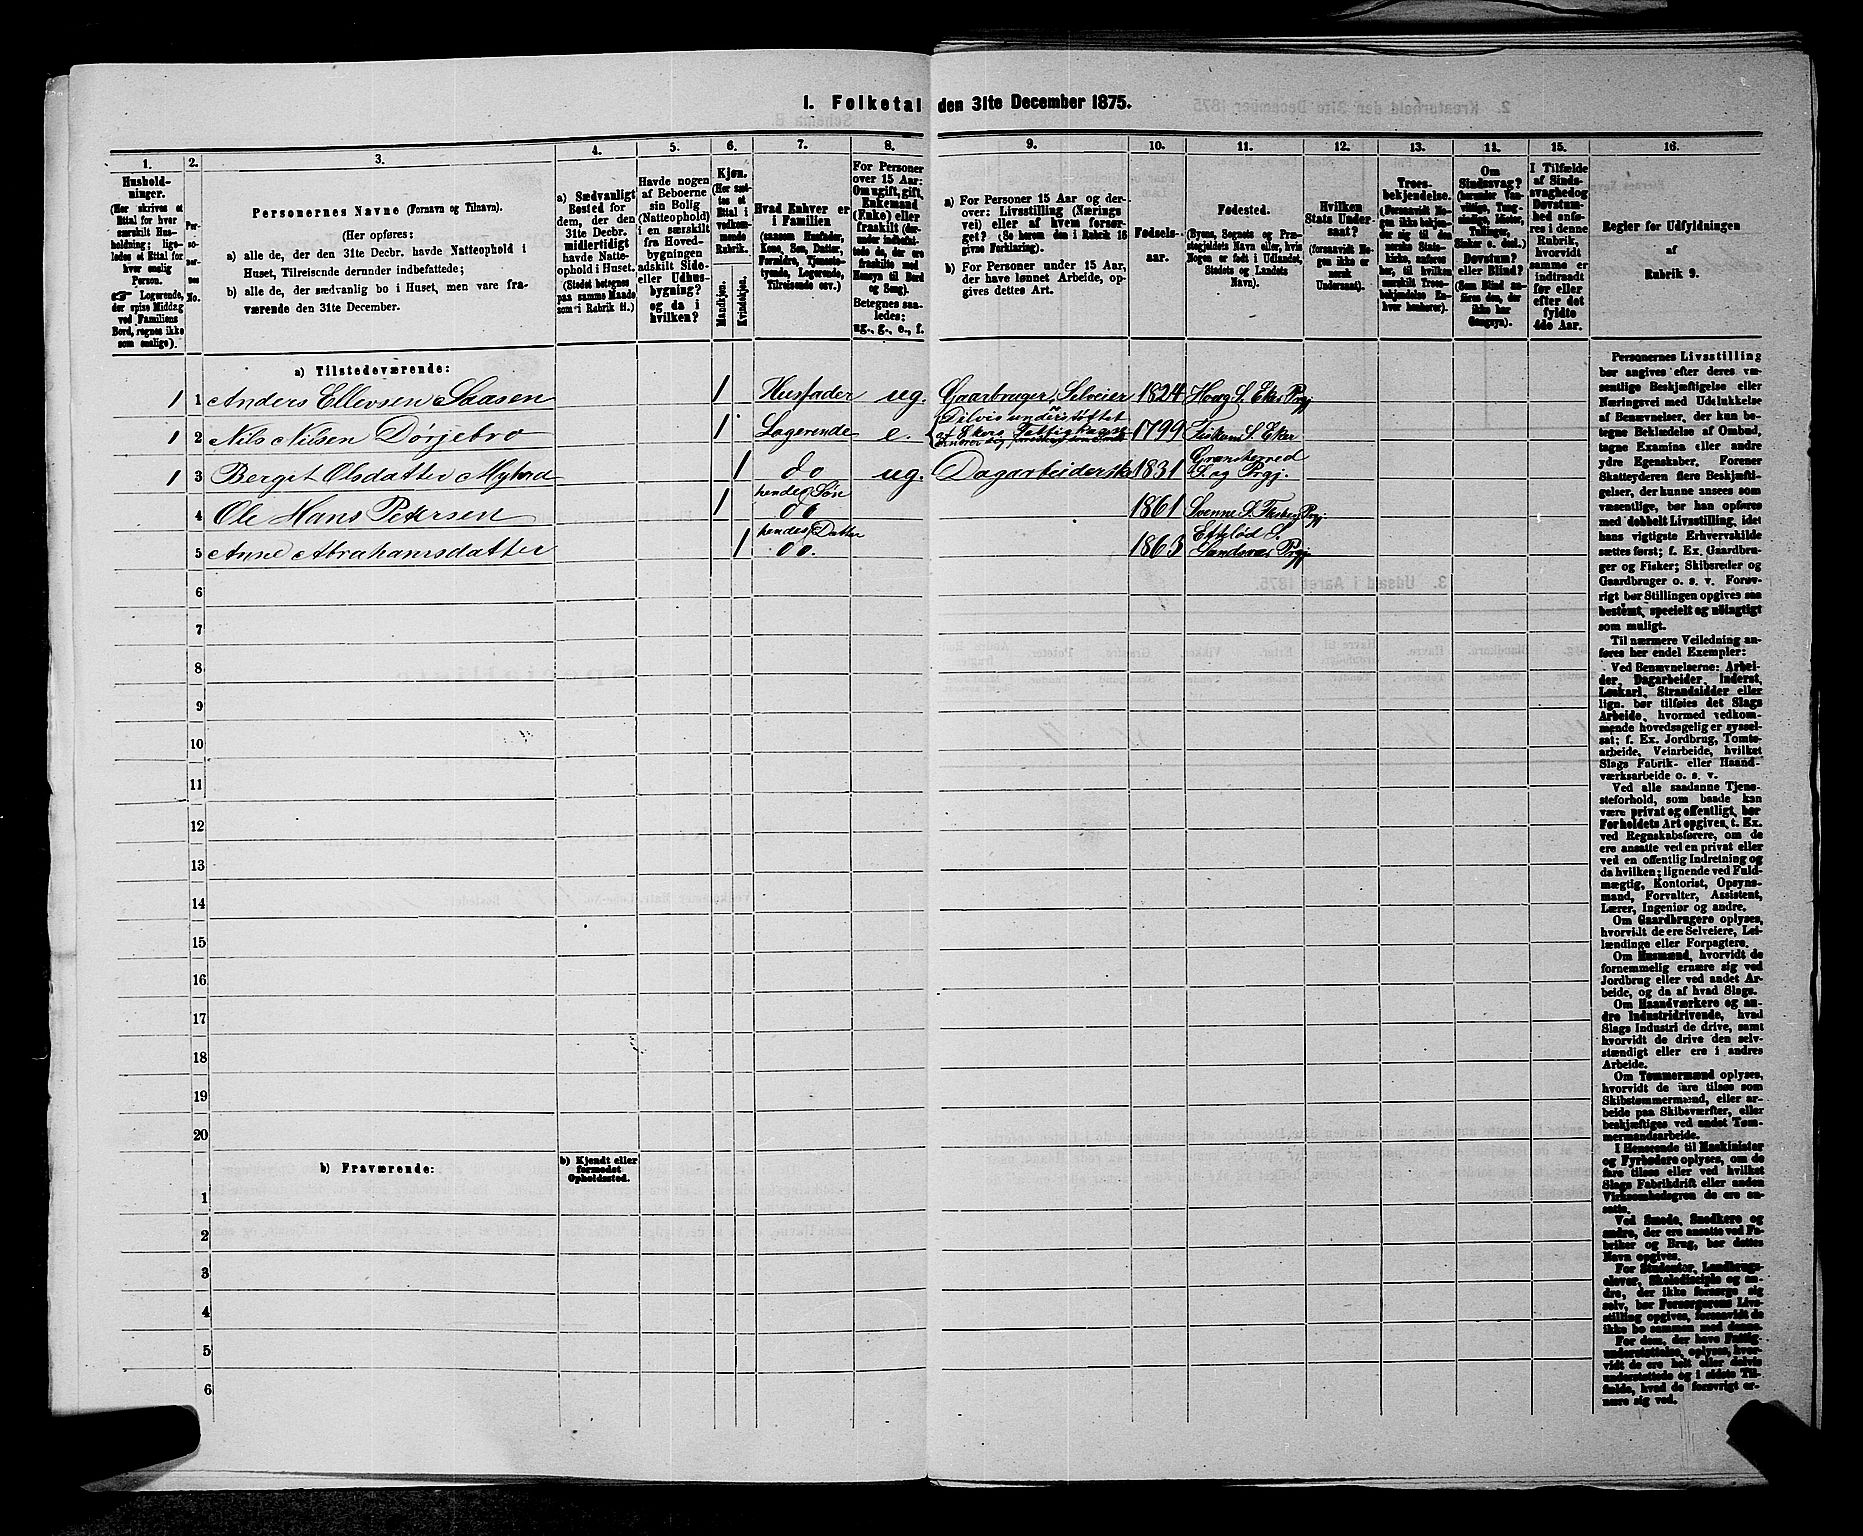 I. Folketal den 31te December 1875.
1. 2. 3. 4. 5. 6. 7. 8. 9. 10. 11. 12. 13. 11. 15. 16.
Hushold-
ninger.
(Her skrives et
Ettal for hver
særskilt Hus-
holdning; lige-
ledes et Ettal for
hver enslig
Person.
☞ Logerende,
der spise Middag
ved Familiens
Bord, regnes ikke
som enslige).
Personernes Navne (Fornavn og Tilnavn).
(Her opføres:
a) alle de, der den 31te Decbr. havde Natteophold i
Huset, Tilreisende derunder indbefattede;
b) alle de, der sædvanlig bo i Huset, men vare fra-
værende den 31te December.
a) Sædvanligt
Bosted for
dem, der den
31te Decbr.
midlertidigt
havde Natte-
ophold i Huset.
(Stedet betegnes
paa samme Maade
som i Rubrik 11.)
Havde nogen
af Beboerne
sin Bolig
(Natteophold)
i en særskilt
fra Hoved-
bygningen
adskilt Side-
eller Udhus-
bygning?
og da i
hvilken?
Kjøn.
(Her sæt-
tes et
Ettal i
vedkom-
mende
Rubrik.
Mandkjøn.
Kvindekjøn.
Hvad Enhver er
i Familien
(saasom Husfader,
Kone, Søn, Datter,
Forældre, Tjeneste-
tyende, Logerende,
Tilreisende osv.)
For Personer
over 15 Aar:
Om ugift, gift,
Enkemand
(Enke) eller
fraskilt
Betegnes saa-
ledes:
ug., g., e., f.
a) For Personer 15 Aar og der-
over: Livsstilling (Nærings
vei) eller af hvem forsør-
get? (Se herom den i Rubrik 16
givne Forklaring).
b) For Personer under 15 Aar,
der have lønnet Arbeide, op-
gives dettes Art.
Fødsels-
aar.
Fødested.
(Byens, Sognets og Præ-
stegjeldets Navn eller, hvis
Nogen er født i Udlandet,
Stedets og Landets
Navn).
Hvilken
Stats Under-
saat?
(forsaavidt No-
gen ikke er
norsk
Undersaat).
Troes-
bekjendelse.
(Forsaavidt No-
gen ikke bekjen-
der sig til den
norske Stats-
kirke, anføres
her, til hvilken
særskilt Troes-
bekjendelse En-
hver henhører).
Om
Sindssvag?
Døvstum?
eller Blind?
I Tilfælde
af Sinds-
svaghed og
Døvstum-
hed anfø-
res i denne
Rubrik,
hvorvidt
samme er
indtraadt
før eller
efter det
fyldte
4de Aar.
Regler for Udfyldningen
af
Rubrik 9.
a) Tilstedeværende:
1 1 Anders Ellevsen Saasen 1 Husfader ug. Gaarbruger, Selveier 1824 Houg S. Eker Prgj
1 2 Nils Nilsen Dørjebro 1 Logerende e. Delvis understøttet
af Ekers Fattigkasse 1799 Fiskum S. Eker
1 3 Berget Olsdatter Myhra 1 do ug. Dagarbeiderske 1831 Gransherred
S. og Prgj.
4 Ole Hans Petersen 1 hendes Søn
do 1861 Svenne S. Flesberg Prgj
5 Anne Abrahamsdatter 1 hendes Datter
do. 1863 Eftelød S.
Sandsvær Prgj
6
7
8
9
10
11
12
13
14
15
16
17
18
19
20
b) Fraværende:
b) Kjendt eller
formodet
Opholdssted.
1
2
3
4
5
6
Personernes Livsstilling
bør angives efter deres væ-
sentlige Beskjæftigelse eller
Næringsvei med Udelukkelse
af Benævnelser, der kun be-
tegne Beklædelse af Ombud,
tagne Examina eller andre
ydre Egenskaber. Forener
Skatteyderen flere Beskjæfti-
gelser, der kunne ansees som
væsentlige, bør han opføres
med dobbelt Livsstilling, idet
hans vigtigste Erhvervskilde
sættes først; f. Ex. Gaardbru-
ger og Fisker; Skibsreder og
Gaardbruger o. s. v. Forøv-
rigt bør Stillingen opgives saa
bestemt, specielt og nöiagtigt
som muligt.
Til nærmere Veiledning an-
føres her endel Exempler:
Ved Benævnelserne: Arbei-
der, Dagarbeider, Inderst,
Løskarl, Strandsidder eller
lign. bør tilføies det Slags
Arbeide, hvormed vedkom-
mende hovedsagelig er syssel-
sat; f. Ex. Jordbrug, Tomte-
arbeide, Veiarbeide, hvilket
Slags Fabrik- eller Haand-
værksarbeide o. s. v.
Ved alle saadanne Tjene-
steforhold, som baade kan
være privat og offentligt, bør
Forholdets Art opgives, t. Ex.
ved Regnskabsførere, om de
ere ansatte ved en privat eller
ved en offentlig Indretning og
da hvilken; lignende ved Fuld-
mægtig, Kontorist, Opsyns-
mand, Forvalter, Assistent,
Lærer, Ingeniør og andre.
Om Gaardbrugere oplyses,
hvorvidt de ere Selveiere, Lei-
lændinge eller Forpagtere.
Om Husmænd, hvorvidt de
fornemmelig ernære sig ved
Jordbrug eller ved andet Ar-
beide, og da af hvad Slags.
Om Haandværkere og an-
dre Industridrivende, hvad
Slags Industri de drive, samt
hvorvidt de drive den selv-
stændigt eller ere i andres
Arbeide.
Om Tømmermænd oplyses,
hvorvidt de fare tilsøs som
Skibstømmermænd, eller ar-
beide paa Skibsværfter, eller
beskjæftiges ved andet Tøm-
mermandsarbeide.
I Henseende til Maskinister
og Fyrbødere oplyses, om de
fare tilsøs eller ved hvilket
Slags Fabrikdrift eller anden
Virksomhedsgren de ere an-
satte.
Ved Smede, Snedkere og
andre, der ere ansatte ved Fa-
briker og Brug, bør dettes
Navn opgives.
For Studenter, Landbrugs-
elever, Skoledisciple og an-
dre, der ikke forsørge sig
selv, bør Forsørgerens Livs-
stilling opgives, forsaavidt de
ikke bo sammen med denne.
For dem, der have Fattig-
understøttelse, oplyses, hvor-
vidt de ere helt eller delvis
understøttede og i sidste Til-
fælde, hvad de forøvrigt er-
nære sig ved.